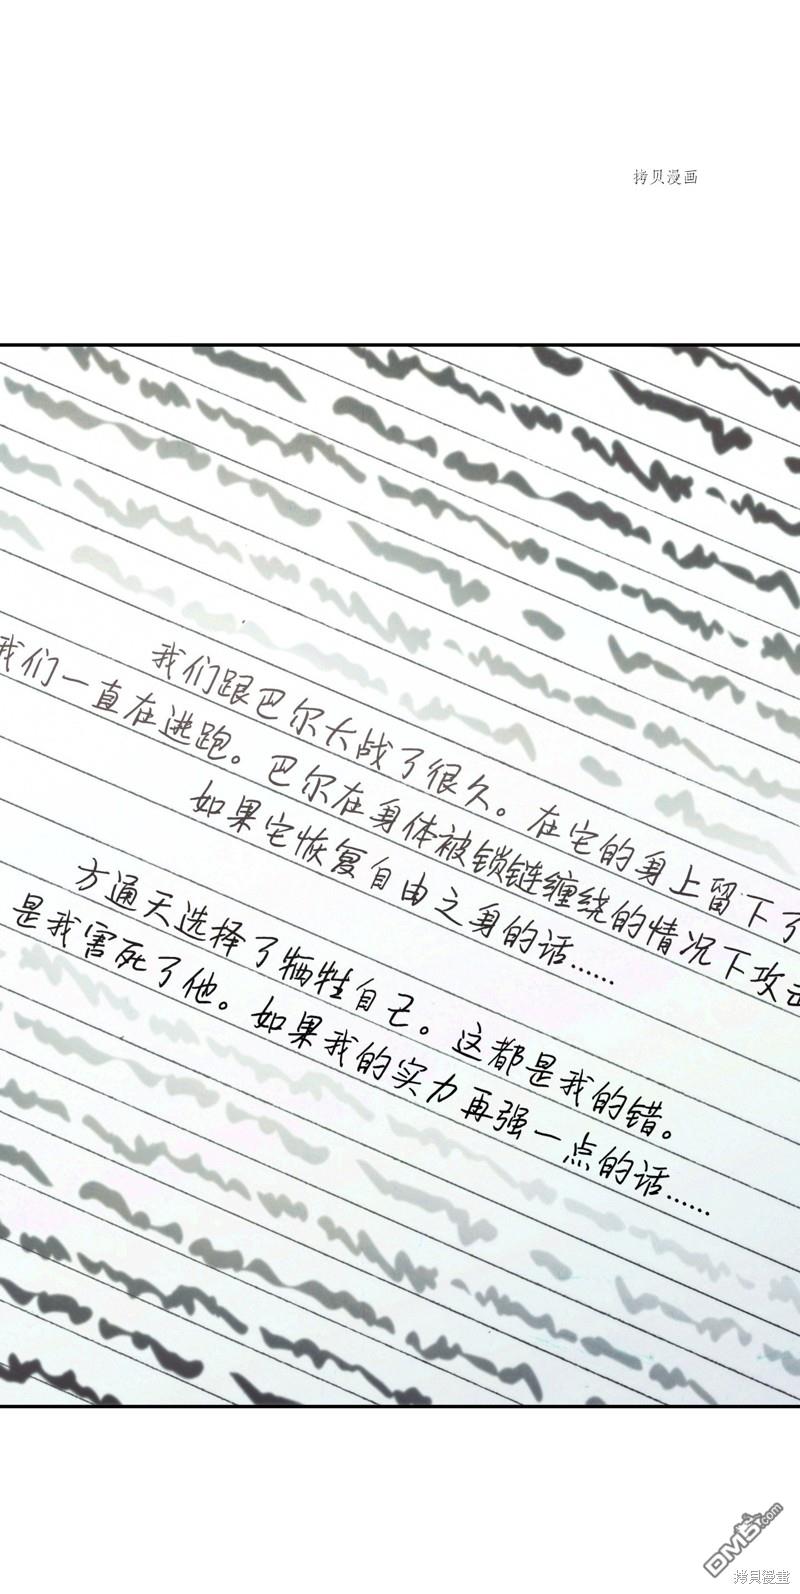 拷贝漫画
我们跟巴尔大战了很久。在它的身上留下了
我们一直在逃跑。巴尔在身体被锁链缠绕的情况下攻击
如果它恢复自由之身的话……
方通天选择了牺牲自己。这都是我的错。
是我害死了他。如果我的实力再强一点的话……
DM5.com
拷贝漫畫